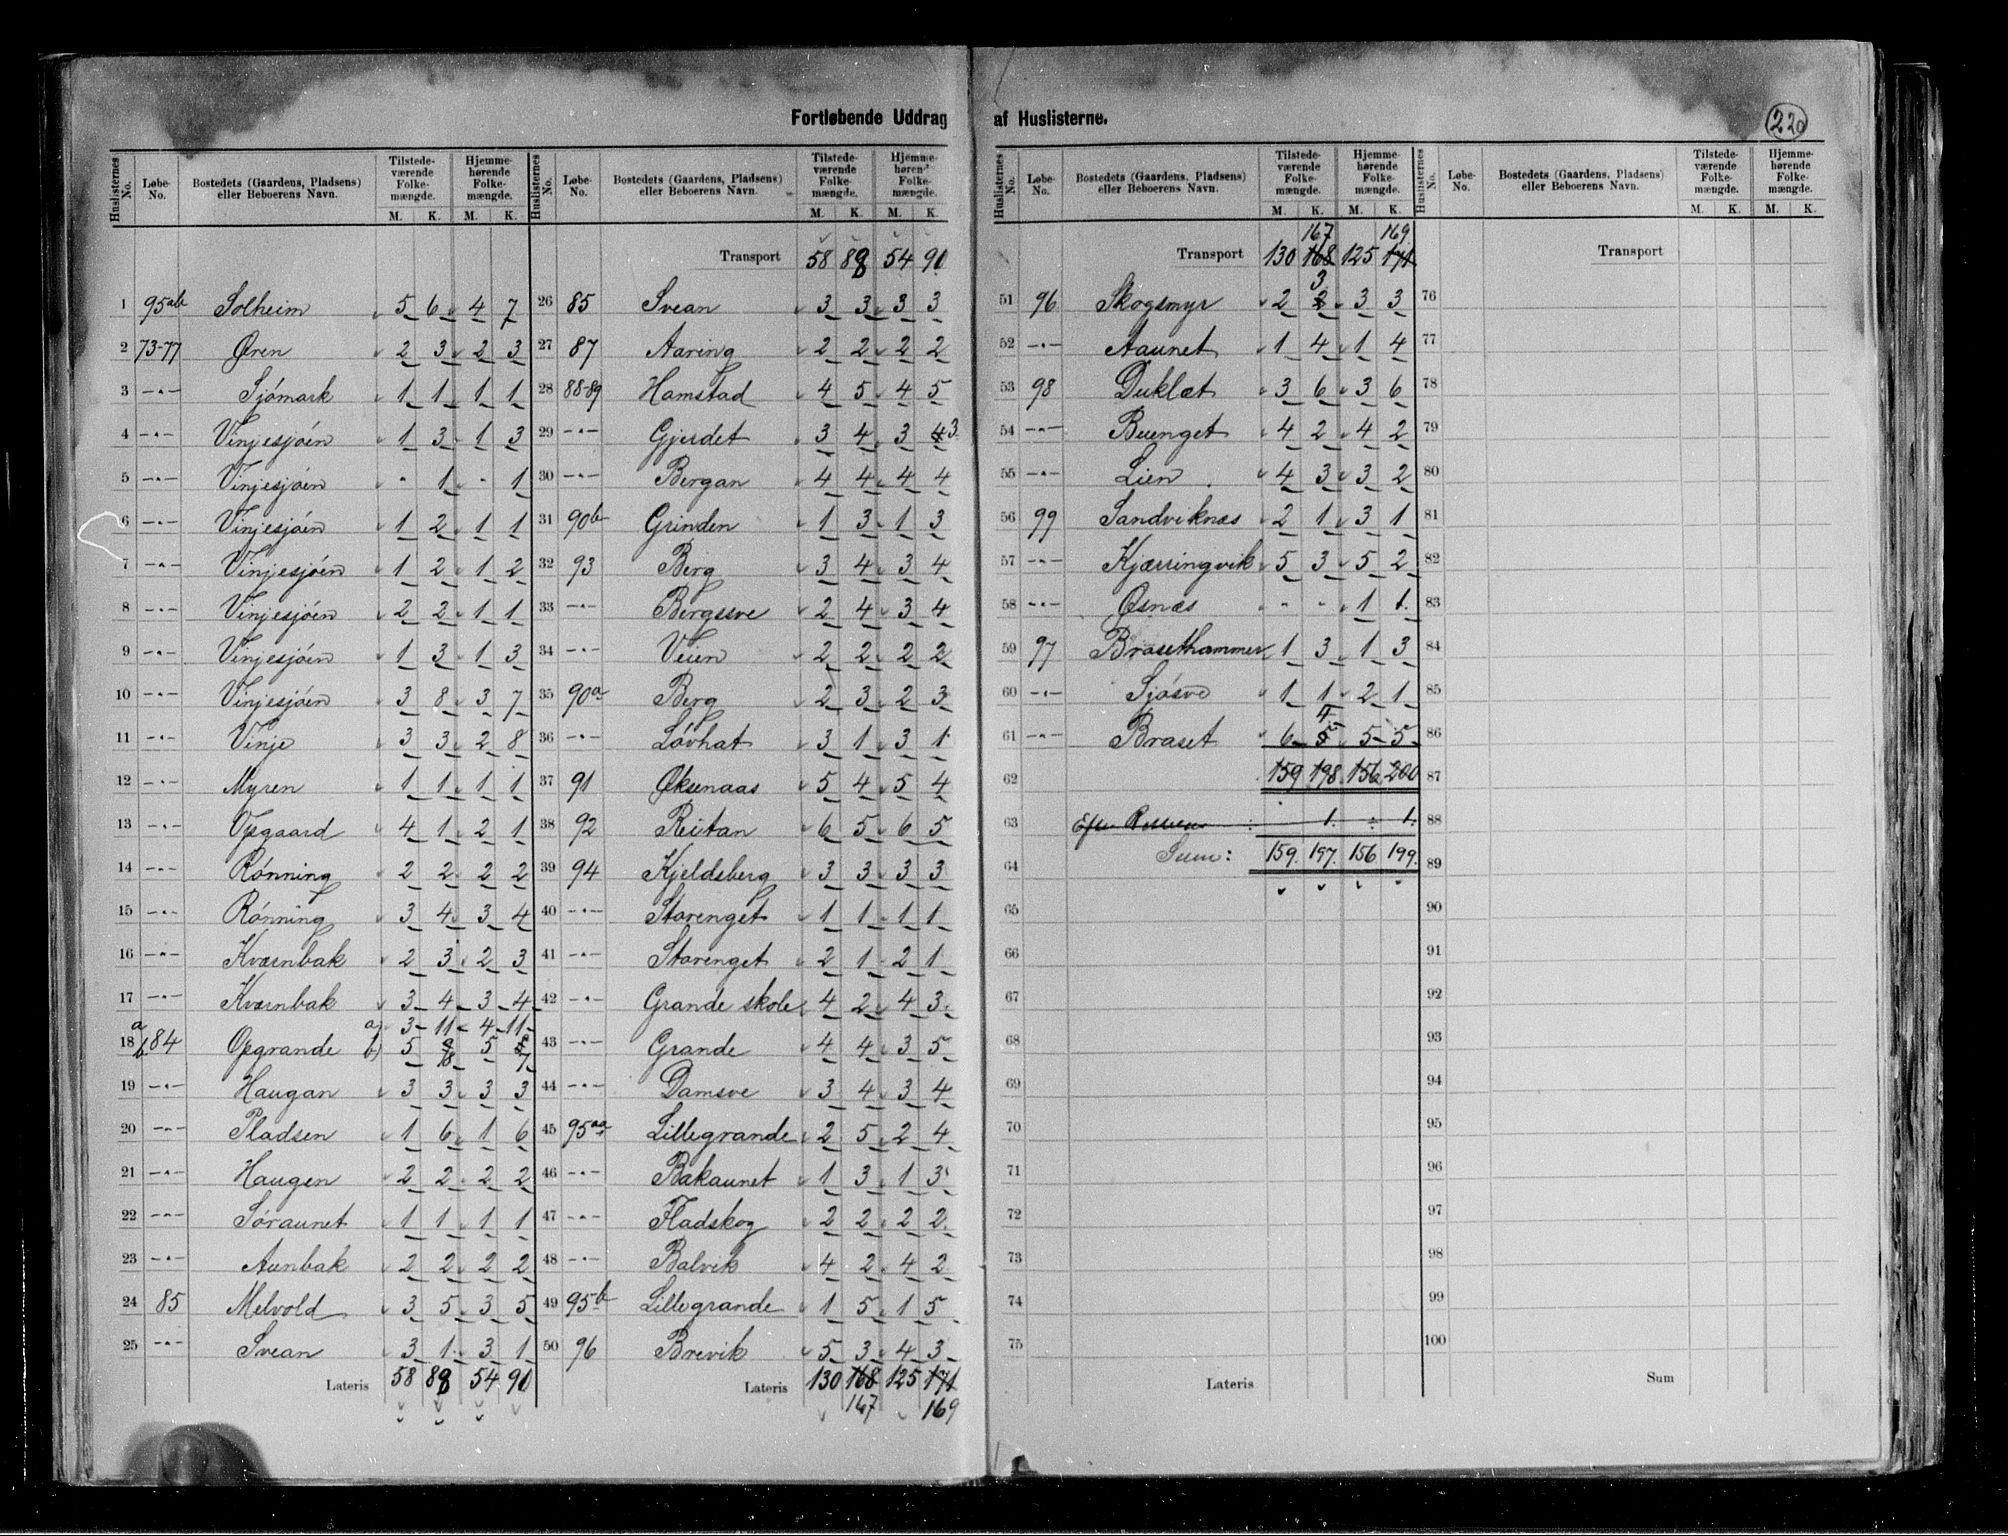 Fortløbende Uddrag af Huslisterne.
220
Huslisternes No. | Løbe-No. | Bostedets (Gaardens, Pladsens) eller Beboerens Navn. | Tilstedeværende Folkemængde. M. K. | Hjemmehørende Folkemængde. M. K.
1 95ab Solheim 5 6 4 7
2 73-77 Øren 2 3 2 3
3 -"- Sjómark 1 1 1 1
4 -"- Vinjesjóen 1 3 1 3
5 -"- Vinjesjóen - 1 - 1
6 -"- Vinjesjóen 1 2 1 1
7 -"- Vinjesjóen 1 2 1 2
8 -"- Vinjesjóen 2 2 1 1
9 -"- Vinjesjóen 1 3 1 3
10 -"- Vinjesjóen 3 8 3 7
11 -"- Vinje 3 3 2 8
12 -"- Myren 1 1 1 1
13 -"- Opgaard 4 1 2 1
14 -"- Rónning 2 2 2 2
15 -"- Rónning 3 4 3 4
16 -"- Kværnbak 2 3 2 3
17 -"- Kværnbak 3 4 3 4
a a) 3 11 4 11
18 b 84 Opgrande b) 5 8 5 7
19 -"- Haugan 3 3 3 3
20 -"- Pladsen 1 6 1 6
21 -"- Haugen 2 2 2 2
22 -"- Sóraunet 1 1 1 1
23 -"- Aunbak 2 2 2 2
24 85 Melvold 3 5 3 5
25 -"- Svean 3 1 3 1
Lateris 58 88 54 90
Huslisternes No. | Løbe-No. | Bostedets (Gaardens, Pladsens) eller Beboerens Navn. | Tilstedeværende Folkemængde. M. K. | Hjemmehørende Folkemængde. M. K.
Transport 58 88 54 90
26 85 Svean 3 3 3 3
27 87 Aaring 2 2 2 2
28 88-89 Hamstad 4 5 4 5
29 -"- Gjerdet 3 4 3 4 3
30 -"- Bergan 4 4 4 4
31 90b Grinden 1 3 1 3
32 93 Berg 3 4 3 4
33 -"- Bergssve 2 4 3 4
34 -"- Veien 2 2 2 2
35 90a Berg 2 3 2 3
36 -"- Lóvhat 3 1 3 1
37 91 Øksenaas 5 4 5 4
38 92 Reitan 6 5 6 5
39 94 Kjeldsberg 3 3 3 3
40 -"- Storenget 1 1 1 1
41 -"- Storenget 2 1 2 1
42 -"- Grande skole 4 2 4 3
43 -"- Grande 4 4 3 5
44 -"- Damsve 3 4 3 4
45 95aa Lillegrande 2 5 2 4
46 -"- Bakaunet 1 3 1 3
47 -"- Fladskog 2 2 2 2
48 -"- Balvik 4 2 4 2
49 95b Lillegrande 1 5 1 5
50 96 Brevik 5 3 4 3
Lateris 130 168 125 171
167 169
Huslisternes No. | Løbe-No. | Bostedets (Gaardens, Pladsens) eller Beboerens Navn. | Tilstedeværende Folkemængde. M. K. | Hjemmehørende Folkemængde. M. K.
167 169
Transport 130 168 125 171
3
51 96 Skogsmyr 2 2 3 3
52 -"- Aaunet 1 4 1 4
53 98 Duklæt 3 6 3 6
54 -"- Buenget 4 2 4 2
55 -"- Lien 4 3 3 2
56 99 Sandviknæs 2 1 3 1
57 -"- Kjærringvik 5 3 5 2
58 -"- Øsnæs - - 1 1
59 97 Brasethammer 1 3 1 3
60 -"- Sjósve 1 1 2 1
4
61 -"- Braset 6 5 5 5
62 159 198 156 200
63 Efter 1. 1.
64 Sum: 159. 197. 156 199.
65
66
67
68
69
70
71
72
73
74
75
Lateris
Huslisternes No. | Løbe-No. | Bostedets (Gaardens, Pladsens) eller Beboerens Navn. | Tilstedeværende Folkemængde. M. K. | Hjemmehørende Folkemængde. M. K.
Transport
76
77
78
79
80
81
82
83
84
85
86
87
88
89
90
91
92
93
94
95
96
97
98
99
100
Sum